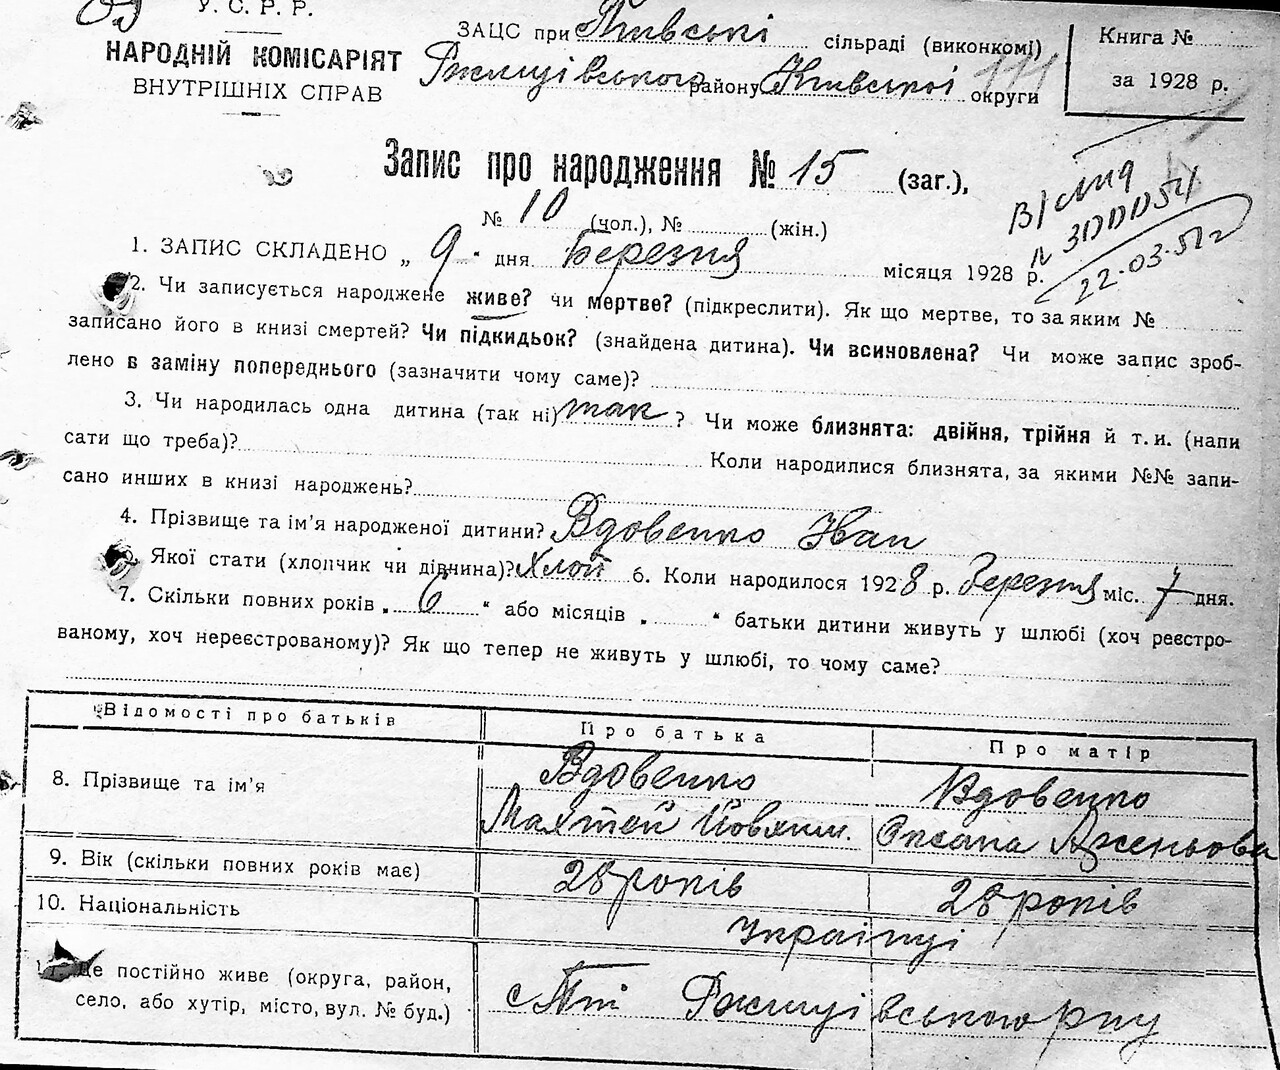 У. С. Р. Р.
НАРОДНІЙ КОМІСАРІЯТ
ВНУТРІШНІХ СПРАВ
ЗАЦС при сільраді (виконкомі)
Ржищівського району Київської округи
Книга №
за 1928 р.
Запис про народження № 15 (заг.),
№ 10 (чол.), № (жін.)
22-03-51 г
1. ЗАПИС СКЛАДЕНО „ 9 " дня Березня місяця 1928 р.
2. Чи записується народжене живе? чи мертве? (підкреслити). Як що мертве, то за яким №
записано його в книзі смертей? Чи підкидьок? (знайдена дитина). Чи всиновлена? Чи може запис зроб-
лено в заміну попереднього (зазначити чому саме)?
3. Чи народилась одна дитина (так ні) так ? Чи може близнята: двійня, трійня й т. и. (напи
сати що треба)? Коли народилися близнята, за якими №№ запи-
сано инших в книзі народжень?
4. Прізвище та ім'я народженої дитини? Вдовенко Іван
Якої стати (хлопчик чи дівчина)? Хлоп 6. Коли народилося 1928 р. Березня міс. 7 дня.
7. Скільки повних років „ 6 " або місяців „ " батьки дитини живуть у шлюбі (хоч реєстро-
ваному, хоч нереєстрованому)? Як що тепер не живуть у шлюбі, то чому саме?
Відомості про батьків Про батька Про матір
8. Прізвище та ім'я Вдовенко Вдовенко
Оксана Арсеньова
9. Вік (скільки повних років має) 28 років 28 років
10. Національність Українці
Де постійно живе (округа, район,
село, або хутір, місто, вул. № буд.) с. Ржищівського р-ну